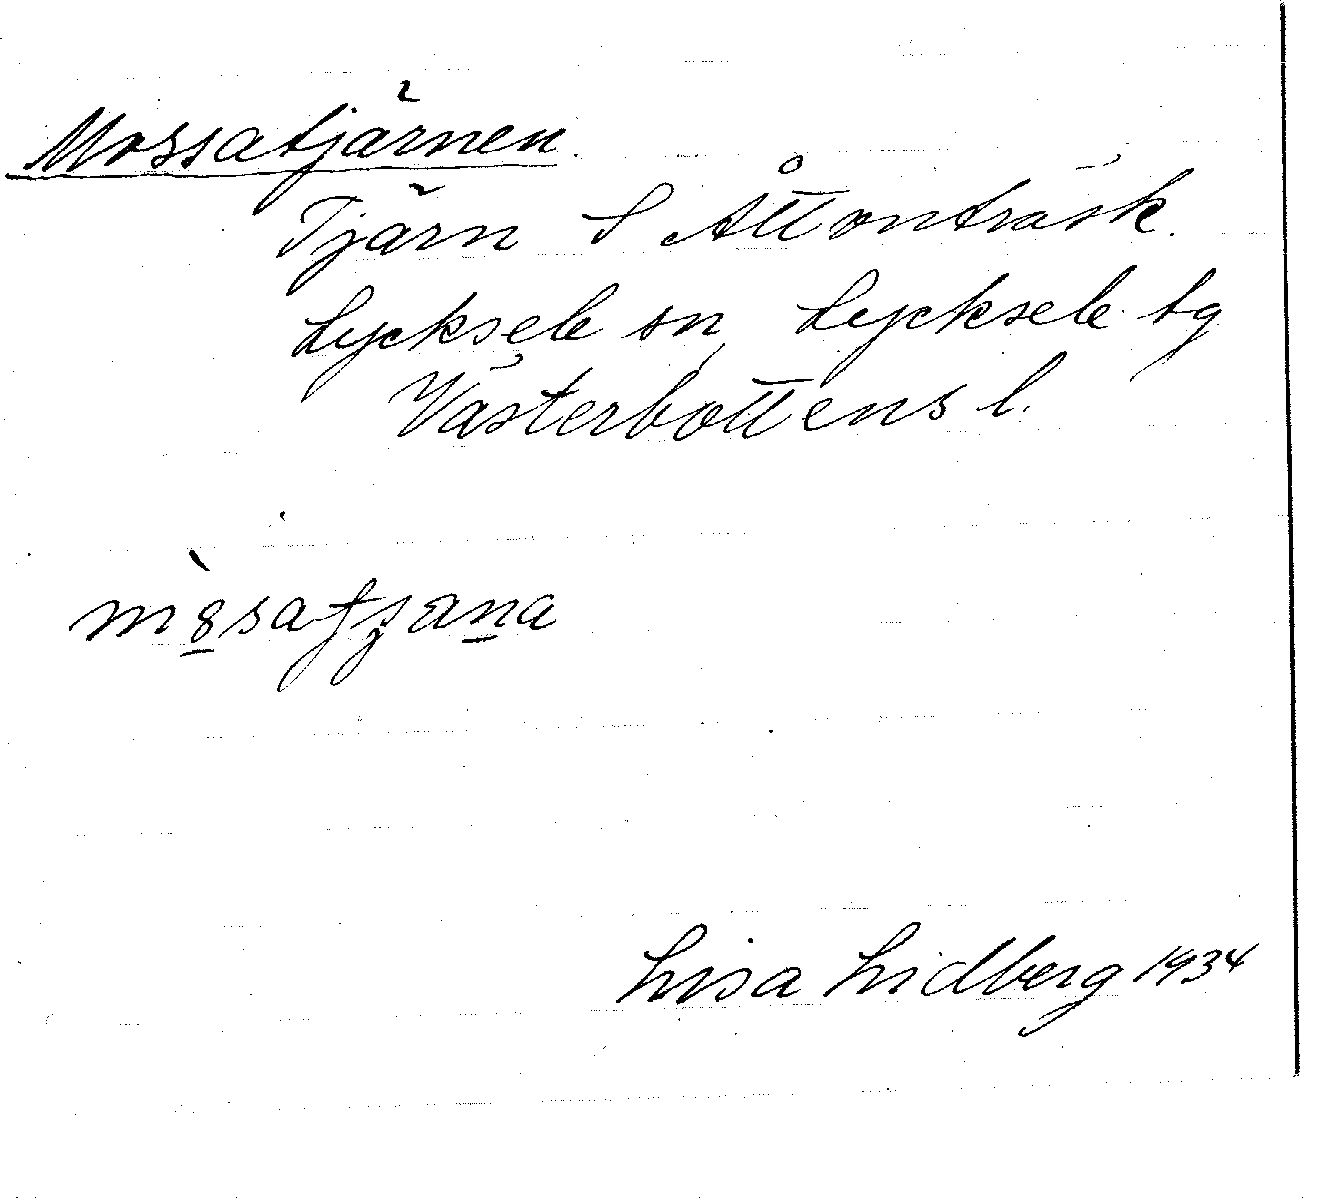 Mossatjärnen.
Tjärn S Åttonträsk.
Lycksele sn, Lycksele tg
Västerbottens l.
Lisa Lidberg 1934